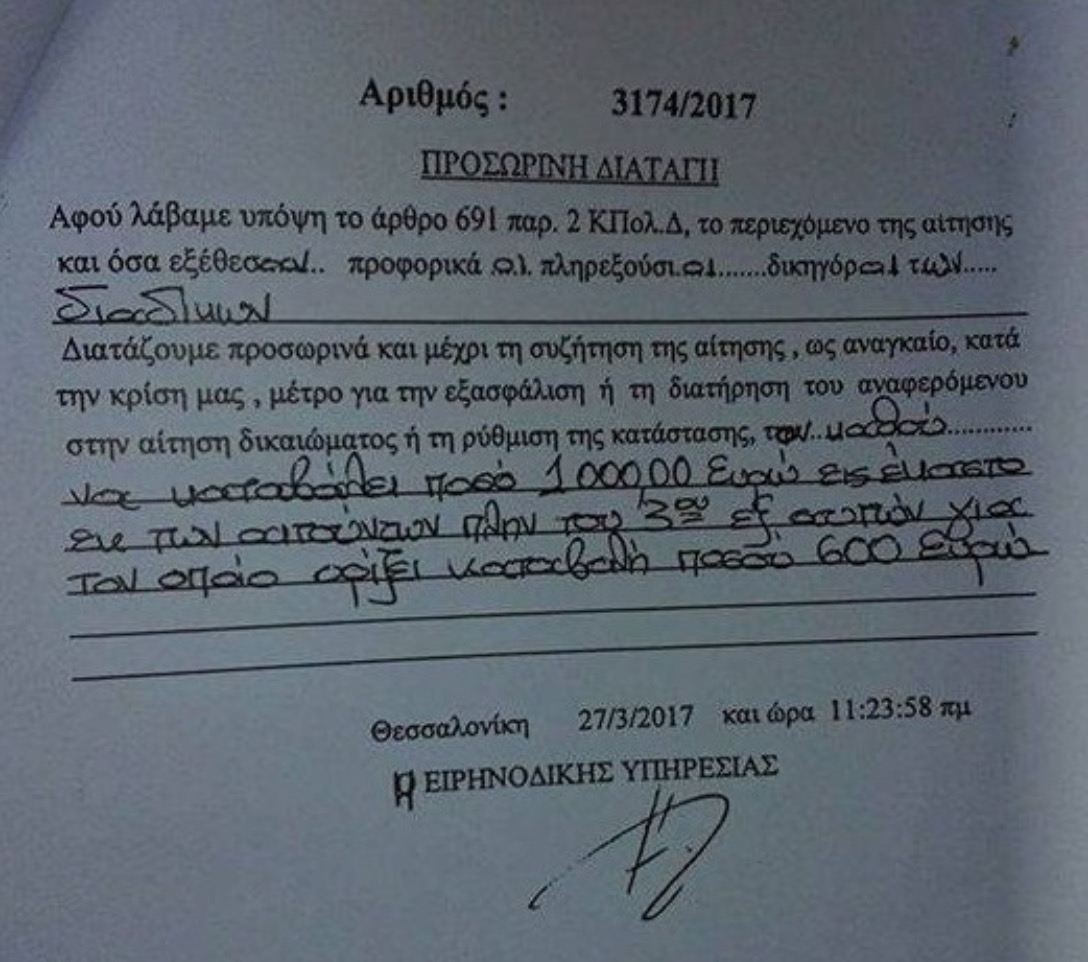 Αριθμός : 3174/2017
ΠΡΟΣΩΡΙΝΗ ΔΙΑΤΑΓΗ
Αφού λάβαμε υπόψη το άρθρο 691 παρ. 2 ΚΠολ.Δ, το περιεχόμενο της αίτησης
και όσα εξέθεσαν.. προφορικά οι. πληρεξούσιοι.......δικηγόροι των.....
διαδίκων
Διατάζουμε προσωρινά και μέχρι τη συζήτηση της αίτησης , ως αναγκαίο, κατά
την κρίση μας , μέτρο για την εξασφάλιση ή τη διατήρηση του αναφερόμενου
στην αίτηση δικαιώματος ή τη ρύθμιση της κατάστασης, τον..καθού............
να καταβάλει ποσό 1.000,00 Ευρώ εις έκαστο
εκ των αιτούντων πλην του 3ου εξ αυτών για
τον οποίο ορίζει καταβολή ποσού 600 ευρώ
Θεσσαλονίκη 27/3/2017 και ώρα 11:23:58 πμ
Η ΕΙΡΗΝΟΔΙΚΗΣ ΥΠΗΡΕΣΙΑΣ